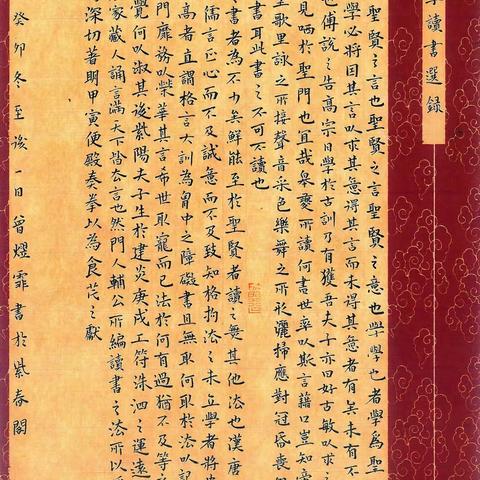 學讀書選錄
聖賢之言也聖賢之言聖賢之意也學學也者學為聖
學必將因其言以求其意得其言而未得其意者有矣未有不
也傅說之告高宗曰學於古訓乃有獲吾夫子亦曰好古敏以求之
見哂於聖門也宜哉皋夔所讀何書世率以斯言藉口豈知
里歌里詠之所接聲音采色樂舞之所形灑掃應對冠昏喪
書耳此書之不可不讀也
書者為不少矣鮮能至於聖賢者讀之無其他法也漢唐
儒言正心而不及誠意而不及致知格物法之未立學者將
高者直謂格言大訓為胷中之障礙書且無取何取於法以記
門靡務以榮華其言希世取寵而已法於何有過猶不及等
覺何以淑其後紫陽夫子生於建炎庚戌工符洙泗之運遠
家藏人誦言滿天下皆夫言也然門人輔公所編讀書之法所以
深切著明甲寅便殿奏拳以為食芹之獻
癸卯冬至後一日曾熠霏書於紫春閣